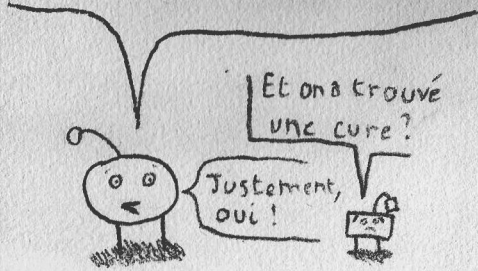 Et on a trouvé
une cure ?
Justement,
oui !